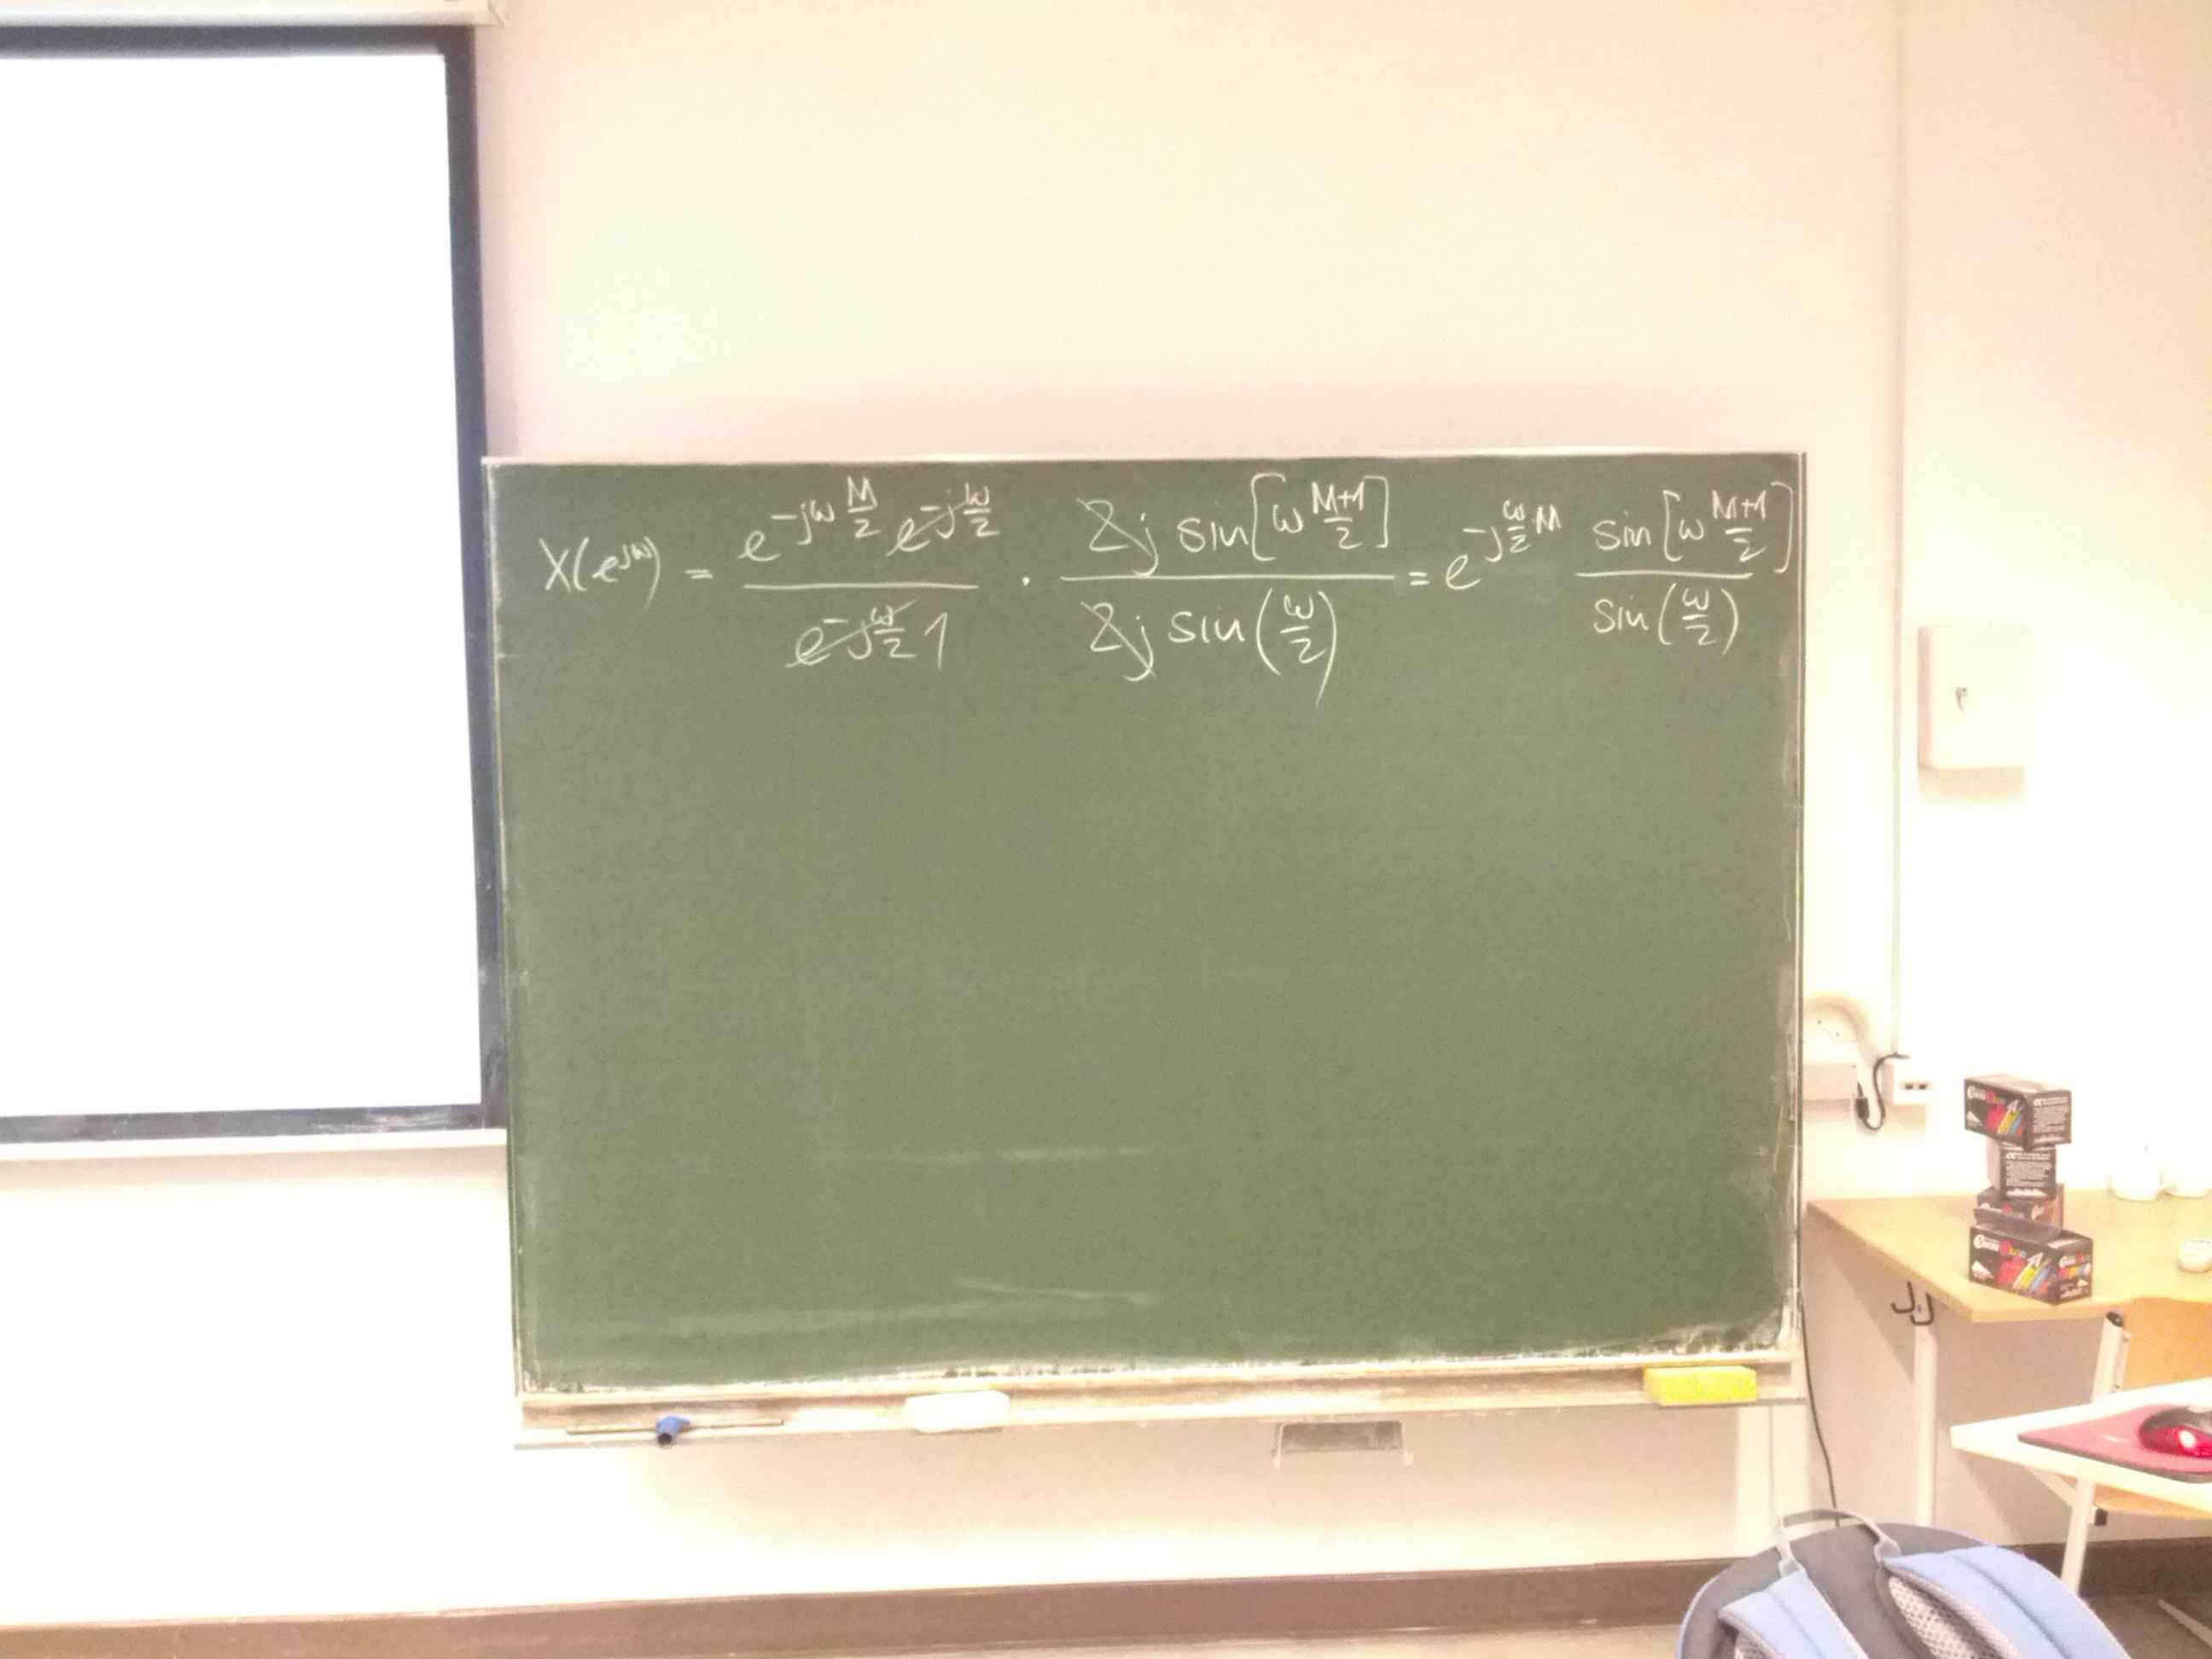 X(e^{jω}) = \frac{e^{-jω\frac{M}{2}} e^{-j\frac{ω}{2}}}{e^{-j\frac{ω}{2}} 1} · \frac{2j sin[ω\frac{M+1}{2}]}{2j sin(\frac{ω}{2})} = e^{-j\frac{ω}{2}M} \frac{sin[ω\frac{M+1}{2}]}{sin(\frac{ω}{2})}